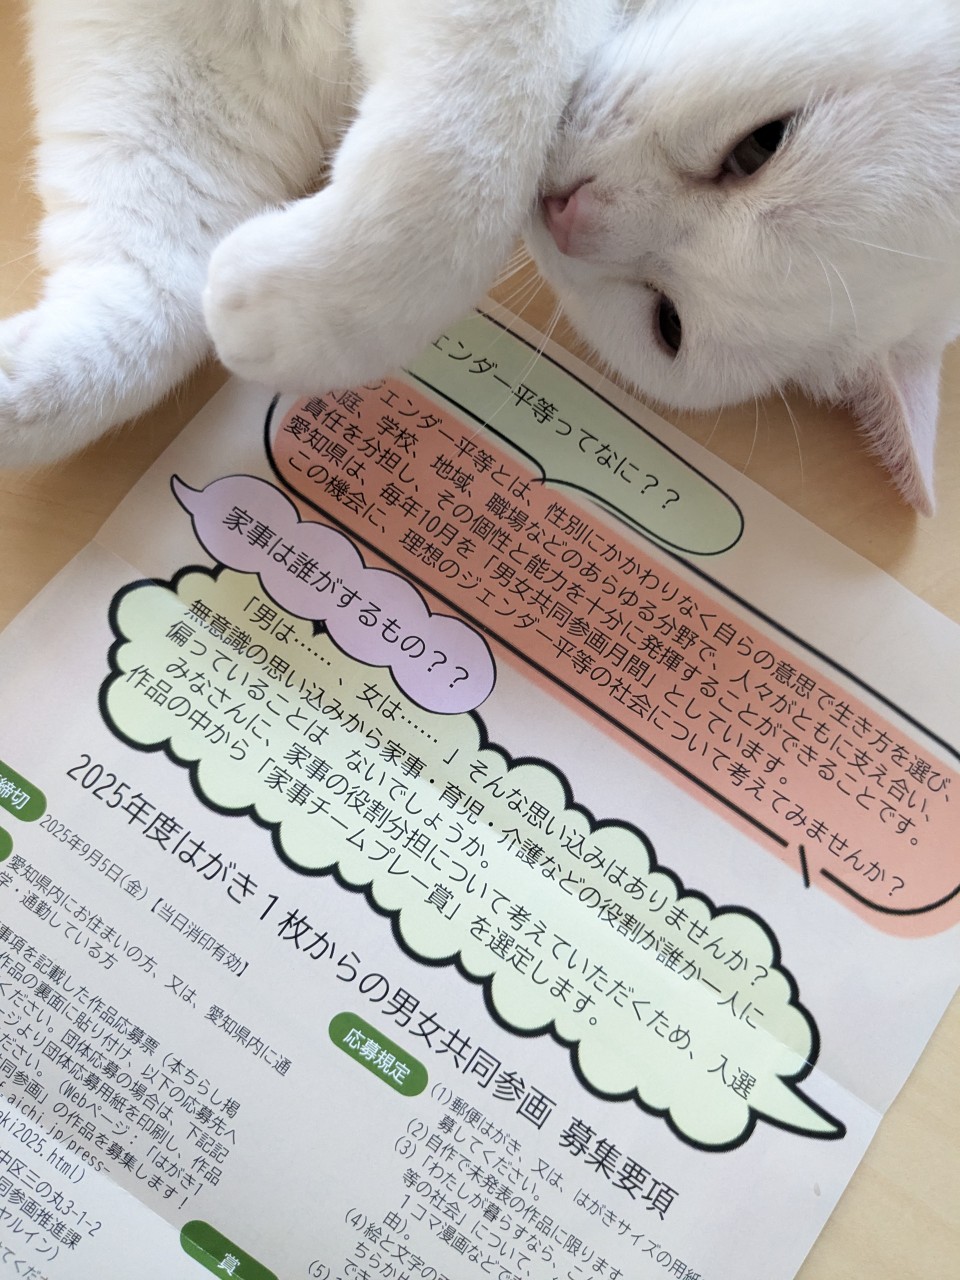 ェンダー平等ってなに？？
ジェンダー平等とは、性別にかかわりなく自らの意思で生き方を選び、
庭、学校、地域、職場などのあらゆる分野で、人々がともに支え合い、
責任を分担し、その個性と能力を十分に発揮することができることです。
愛知県は、毎年10月を「男女共同参画月間」としています。
この機会に、理想のジェンダー平等の社会について考えてみませんか？
家事は誰がするもの？？
「男は……、女は……」そんな思い込みはありませんか？
無意識の思い込みから家事・育児・介護などの役割が誰か一人に
偏っていることは、ないでしょうか。
みなさんに、家事の役割分担について考えていただくため、入選
作品の中から「家事チームプレー賞」を選定します。
2025年度はがき１枚からの男女共同参画 募集要項
締切
2025年9月5日(金)【当日消印有効】
愛知県内にお住まいの方、又は、愛知県内に通
学・通勤している方
事項を記載した作品応募票（本ちらし掲
作品の裏面に貼り付け、以下の応募先へ
ください。団体応募の場合は、下記記
ージより団体応募用紙を印刷し、作品
ださい。（Webページ：「はがき1
同参画」の作品を募集します！
.aichi.jp/press-
ki2025.html)
中区三の丸3-1-2
同参画推進課
ヤルイン)
てくだ
応募規定
(1)郵便はがき、又は、はがきサイズの用紙
募してください。
(2)自作で未発表の作品に限ります
(3)「わたしが暮らすなら、こん
等の社会」について、
１コマ漫画などで
由)。
(4)絵と文字の
ちらか
でき
(5)
賞